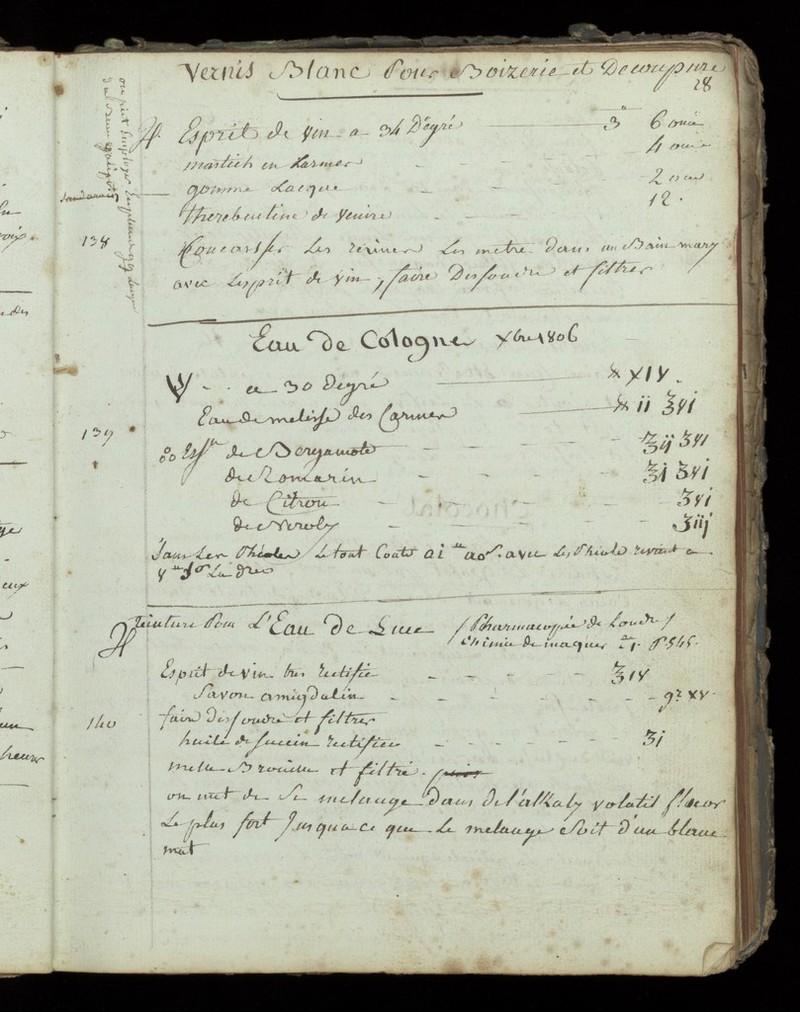 Vernis Blanc Pour Boizerie et Decoupure
28
Esprit de vin a 34 Degré 3 6 onces
mastich en Larmes 4 onces
gomme Lacque 2 onces
therebentine de venize 12.
138
Concasser Les rezines Les metre dans un Bain mary
avec Lesprit de vin, faire Dissoudre et filtrer
Eau De Cologne Xbre 1806
a 30 Degré XIV.
Eau de melisse des Carmes ii ʒvi
139
Essce de Bergamote ʒij ʒvi
de Romarin ʒi ʒvi
de Citron ʒvi
de Neroly ʒiij
Sans Les Phioles Le tout Coute avec Les Phiole revient a
La
Teinture Pour L'Eau De Luce / Pharmacopée de Londre /
Chimie de maquer P. 545.
Esprit de vin tres rectifie ʒiv
Savon amigdalin gr. xv.
140
faire dissoudre et filtrer
huile de succin rectifiee ʒi
mele Brouille et filtre.
on met de Ce melange Dans de l'alkaly volatil fluor
Le plus fort Jusqua ce que Le melange Soit d'un blanc
mat